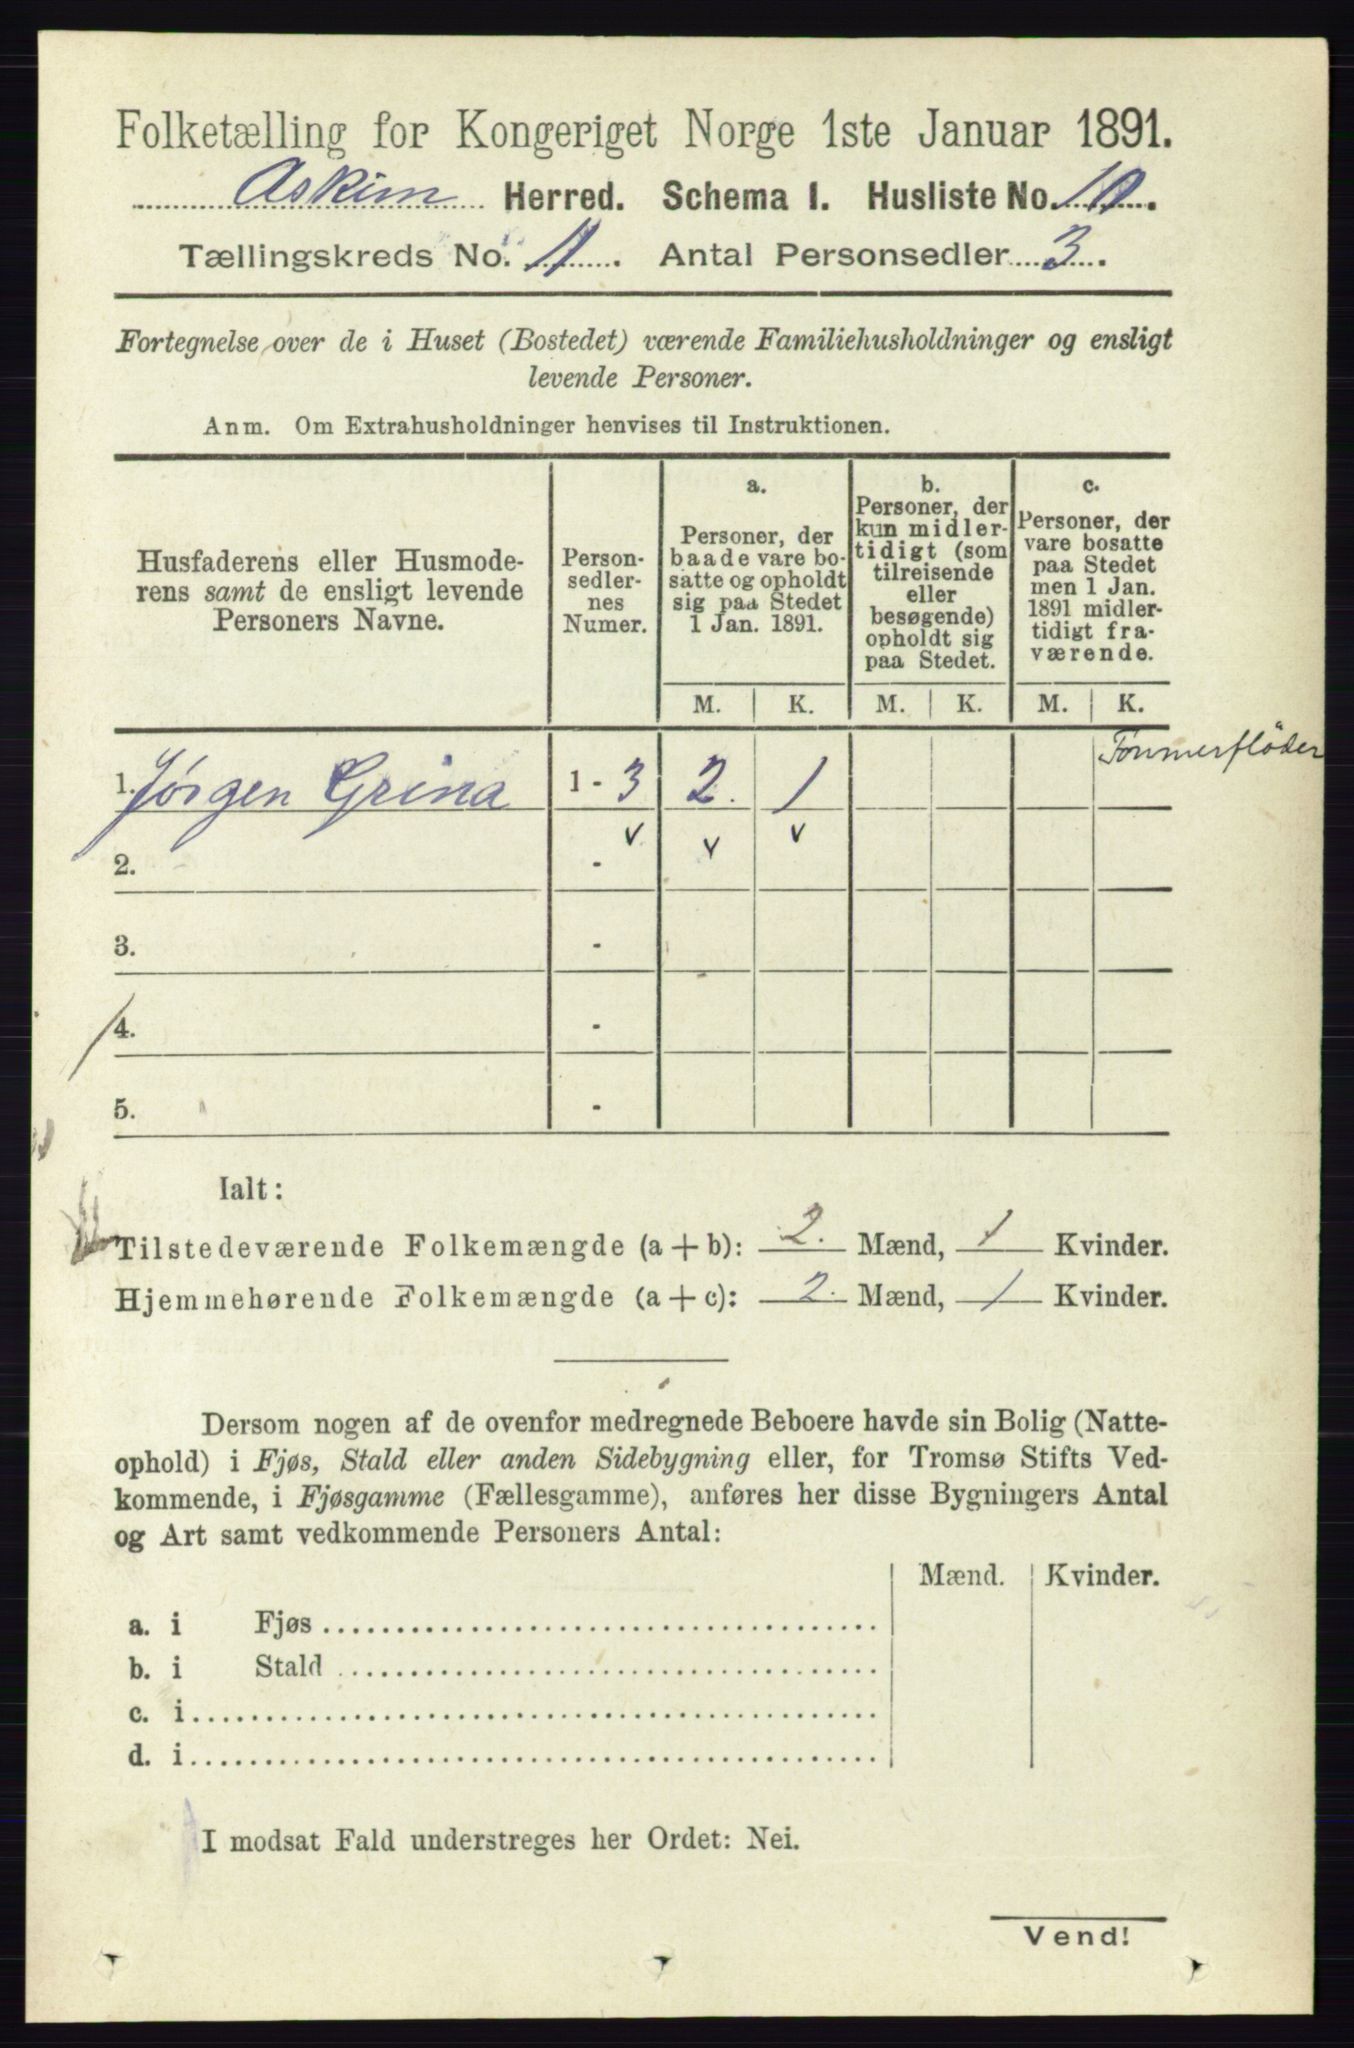 Folketælling for Kongeriget Norge 1ste Januar 1891.
Askim Herred. Schema I. Husliste No. 10.
Tællingskreds No. 11. Antal Personsedler 3.
Fortegnelse over de i Huset (Bostedet) værende Familiehusholdninger og ensligt
levende Personer.
Anm. Om Extrahusholdninger henvises til Instruktionen.
Husfaderens eller Husmode-
rens samt de ensligt levende
Personers Navne.
Person-
sedler-
nes
Numer.
a.
Personer, der
baade vare bo-
satte og opholdt
sig paa Stedet
1 Jan. 1891.
b.
Personer, der
kun midler-
tidigt (som
tilreisende
eller
besøgende)
opholdt sig
paa Stedet.
c.
Personer, der
vare bosatte
paa Stedet
men 1 Jan.
1891 midler-
tidigt fra-
værende.
M. K. M. K. M. K.
Tømmerfløder
1. Jørgen Grina 1 - 3 2. 1
2. -
3. -
4. -
5. -
Ialt:
Tilstedeværende Folkemængde (a + b): 2. Mænd, 1 Kvinder.
Hjemmehørende Folkemængde (a + c): 2. Mænd, 1 Kvinder.
Dersom nogen af de ovenfor medregnede Beboere havde sin Bolig (Natte-
ophold) i Fjøs, Stald eller anden Sidebygning eller, for Tromsø Stifts Ved-
kommende, i Fjøsgamme (Fællesgamme), anføres her disse Bygningers Antal
og Art samt vedkommende Personers Antal:
Mænd. Kvinder.
a. i Fjøs
b. i Stald
c. i
d. i
I modsat Fald understreges her Ordet: Nei.
Vend!